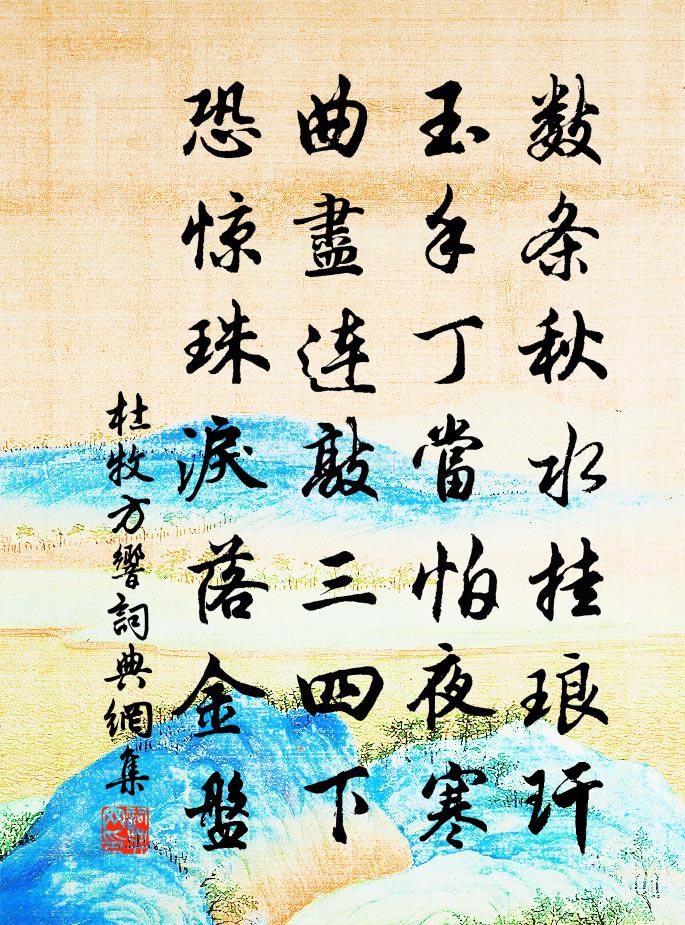 数条秋水挂琅玕
玉手丁當怕夜寒
曲盡连敲三四下
恐惊珠淚落金盤
杜牧方響詞典網集